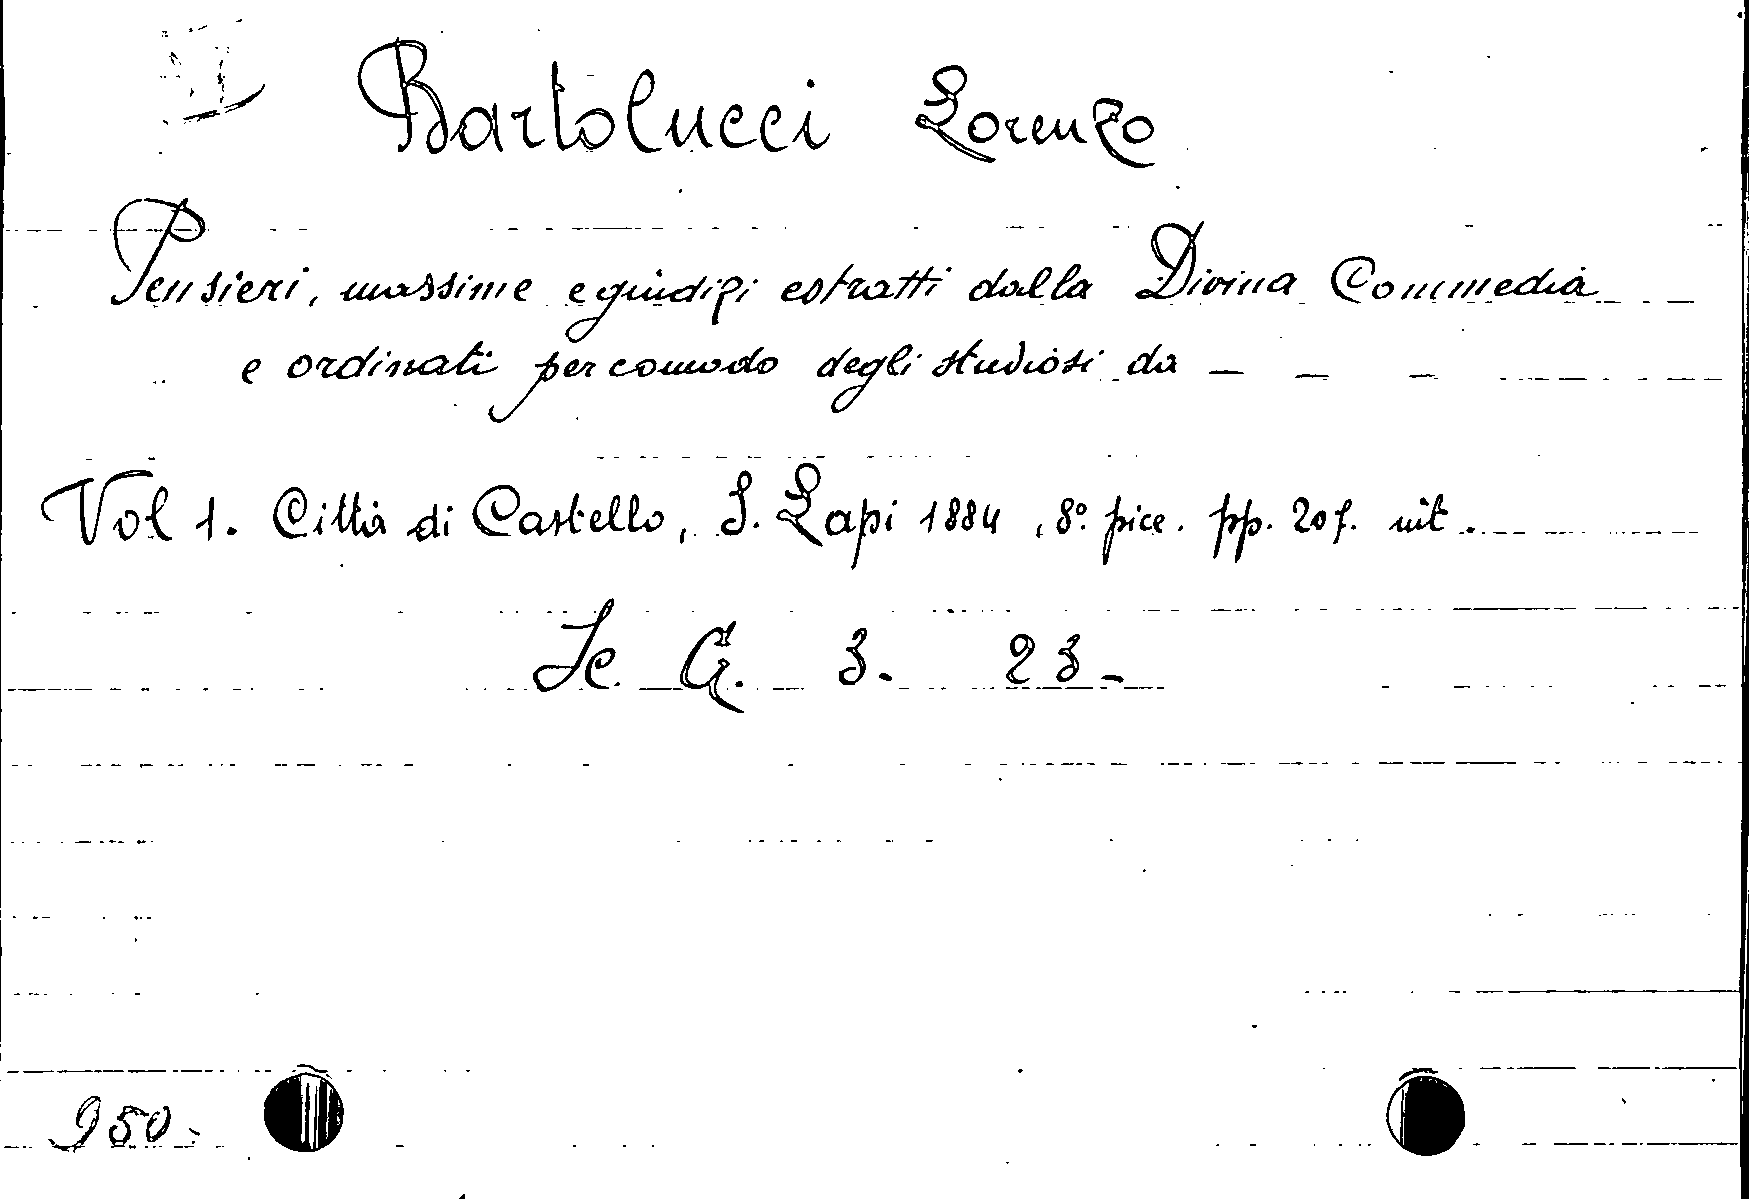 Bartolucci Lorenzo
Pensieri, massime e giudizi estratti dalla Divina Commedia
e ordinati per comodo degli studiosi da _ _ _
Vol 1. Città di Castello, S. Lapi 1884, 8º picc. pp. 207.
G. 3. 23-
950.